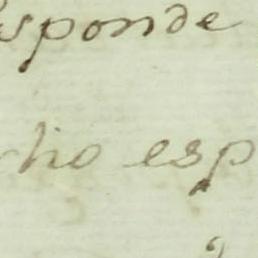 sponde
ho esp